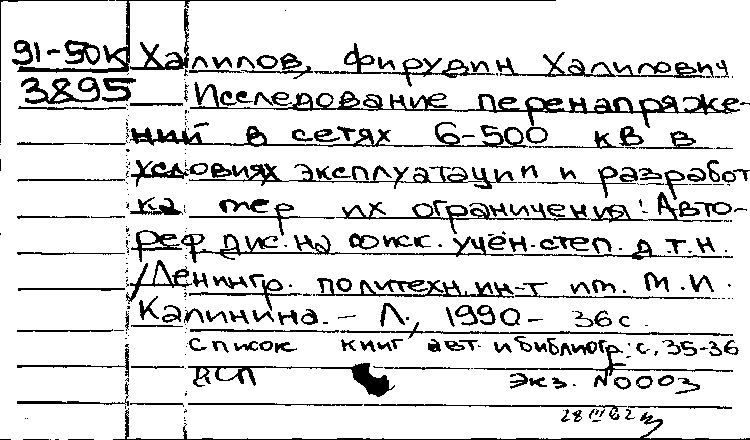 91-50к Халилов, Фирудин Халилович
3895 Исследование перенапряже-
ний в сетях 6-500 кВ в
условиях эксплуатации и разработ
ка мер их ограничения: Авто-
реф дис. на соиск. учён. степ. д.т.н.
/Ленингр. политехн. ин-т им. М.И.
Калинина. - Л., 1990 - 36 с.
список книг авт. и библиогр.: с. 35-36
ДСП экз. №0003